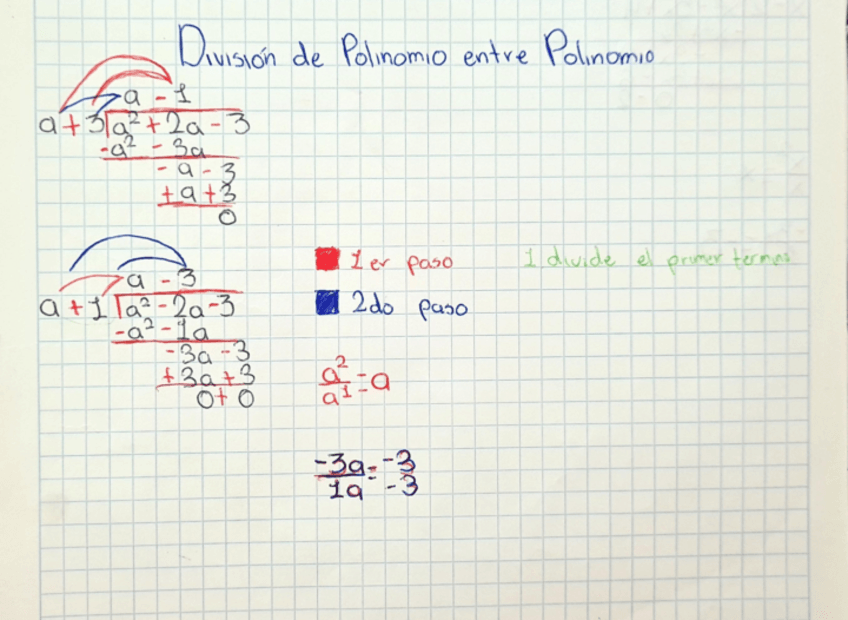 División de Polinomio entre Polinomio
a - 1
a + 3 a² + 2a - 3
-a² - 3a
- a - 3
+ a + 3
0
a - 3
a + 1 a² - 2a - 3
-a² - 1a
-3a - 3
+3a + 3
0 + 0
1er paso
1 divide el primer termno
2do paso
a²/a¹ = a
-3a/1a = -3
-3